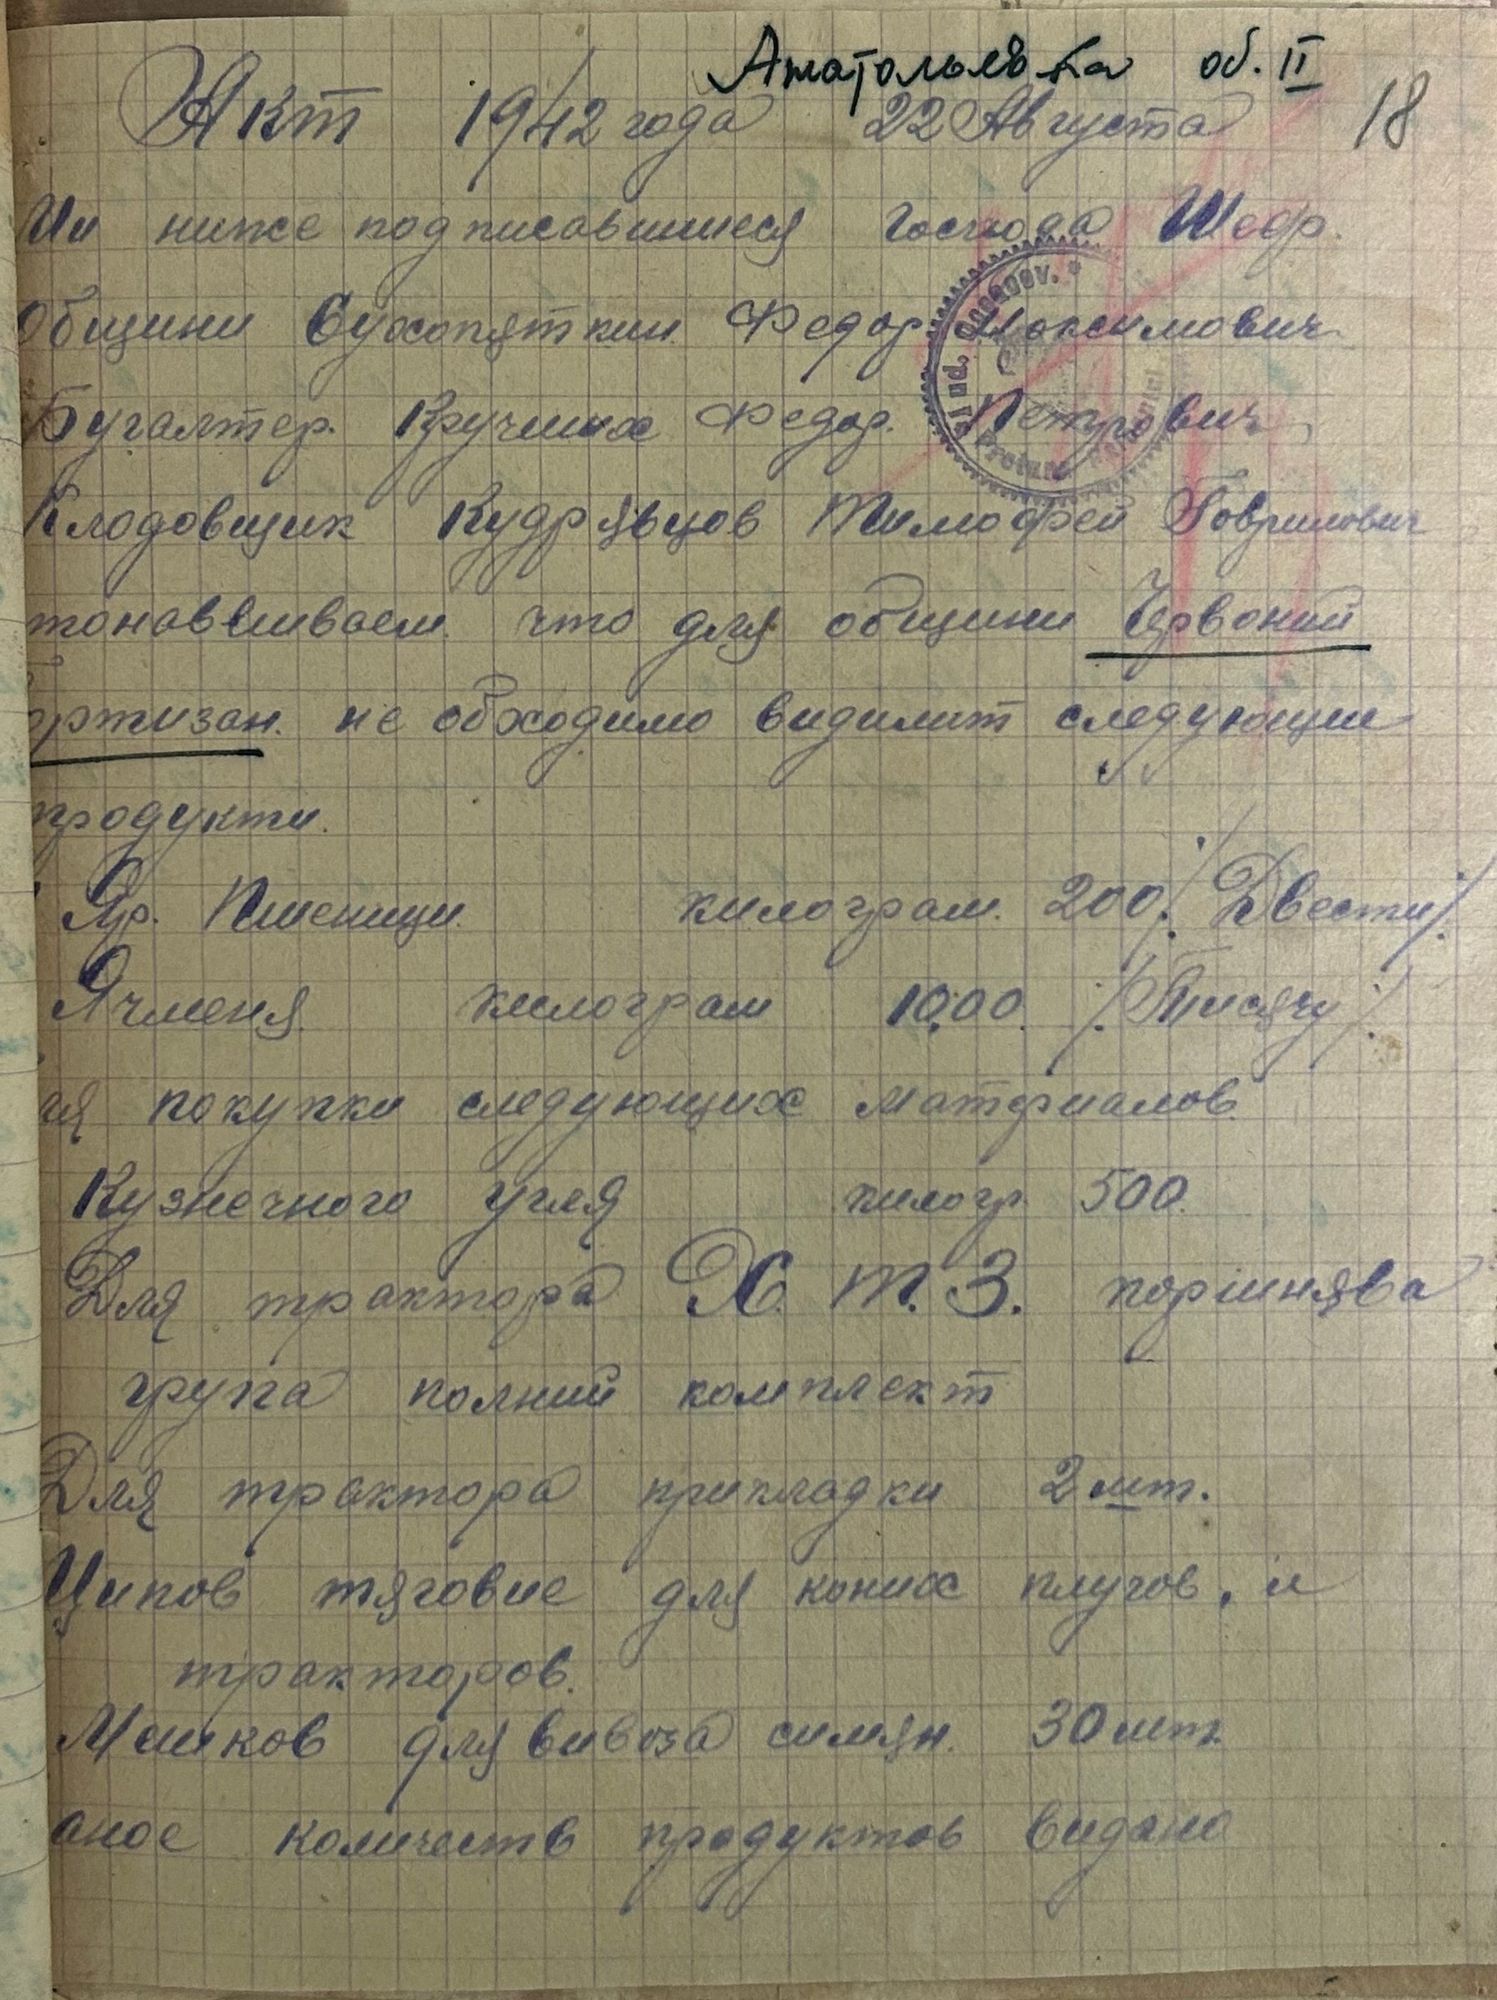 Анатольевка об. II
18
Акт 1942 года 22 Августа
Ми ниже подписавшиеся господа Шефр.
Общини Сухопяткин Федор Максимович
Бугалтер. Кручиних Федор. Петрович
Кладовщик Кудрявцов Тимофей Гаврилович
танаввливаем что для общини Червоний
артизан. не обходимо видилит следующии
продукти.
Яр. Пшеници. килограм. 200 /. Двести /.
Ячменя килограм 1000. /. Тисячу /.
ля покупки следующих материалов
Кузнечного угля килогр. 500.
Для трактора Х. Т. З. поршнява
група полний комплект
Для трактора прикладки 2 шт.
Ципов тяговие для коних плугов, и
тракторов.
Мешков для вивоза симян. 30 шт.
аное количеств продуктов видано